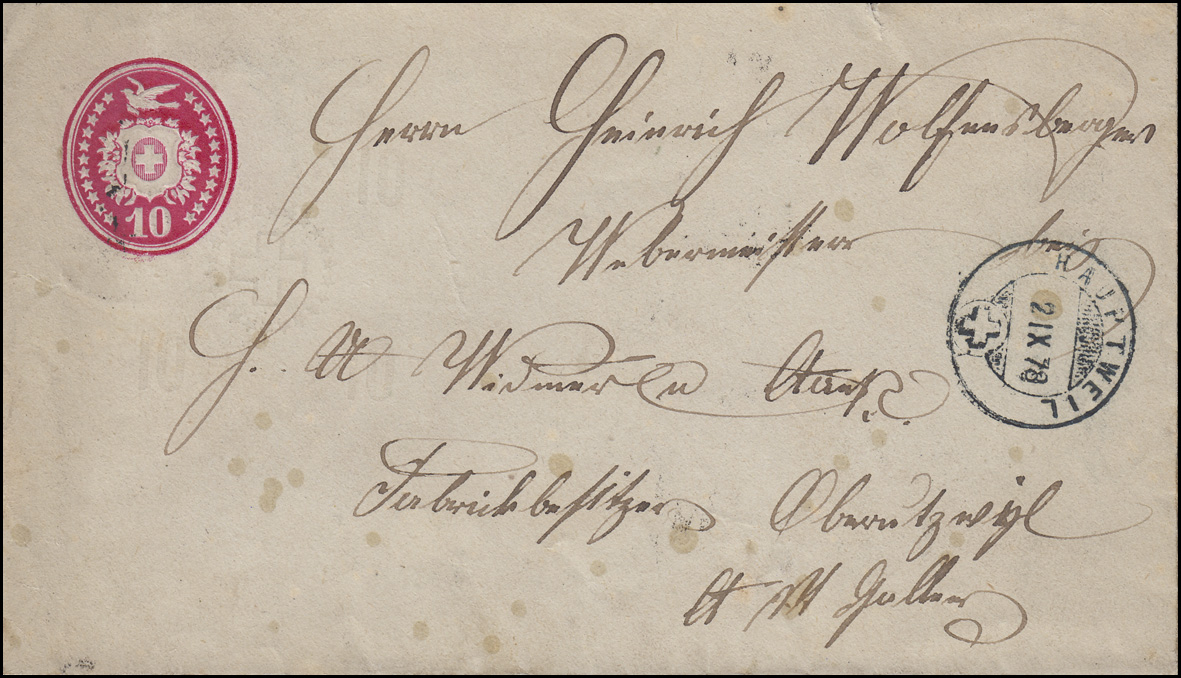 10
Herrn Heinrich Wolfensberger
Webermeister bei
H. Widmer
Fabrickbesitzer Oberutzwÿl
Ct St Gallen
HAUPTWEIL
2 IX 78